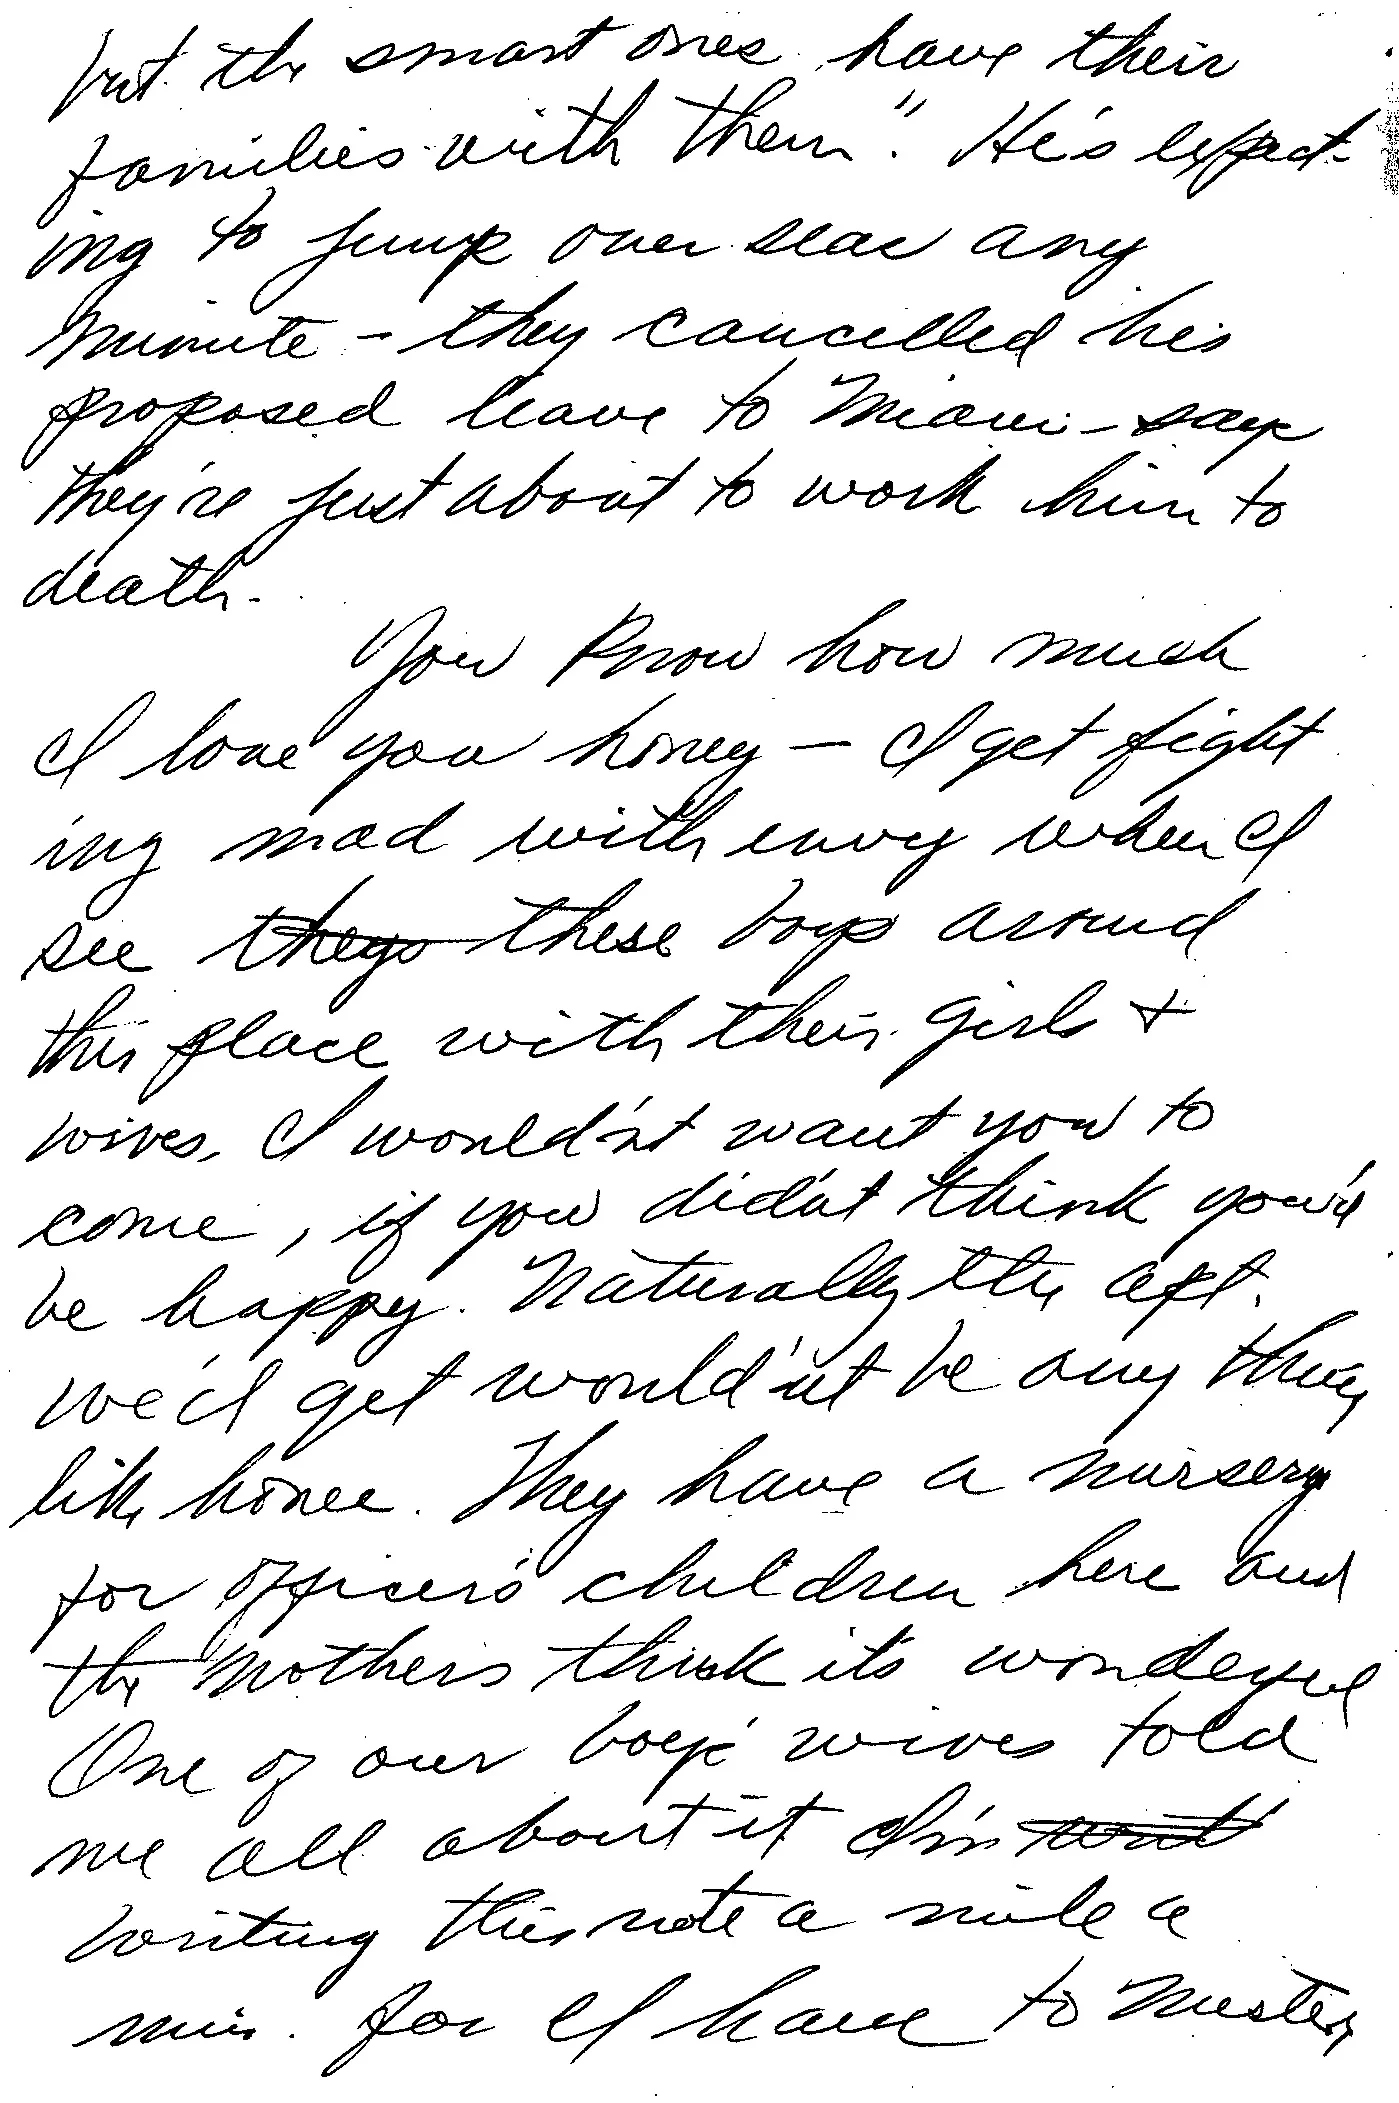 but the smart ones have their
families with them". He's expect-
ing to jump over seas any
minute - they cancelled his
proposed leave to Miami - says
they're just about to work him to
death.
You know how much
I love you honey — I get fight
ing mad with envy when I
see theys these boys around
this place with their girls +
wives. I would'nt want you to
come, if you did'nt think you'd
be happy. Naturally the apt.
we'd get would'nt be any thing
like home. They have a nursery
for officer's children here and
the mothers think it's wonderful
One of our boys' wives told
me all about it I'm writ
writing this note a mile a
min. for I have to muster